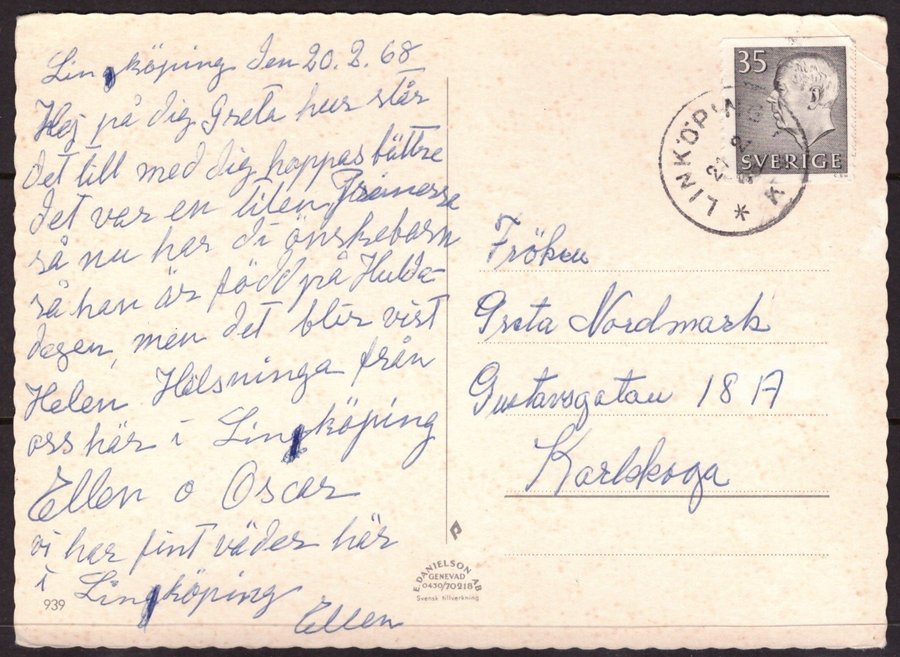 Lingköping den 20.2.68
Hej på dig Greta hur står
det till med dig hoppas bättre
det var en liten Prinsessa
så nu har di önskebarn
så han är född på Hulda-
dagen, men det blir visst
Helen, Hälsninga från
oss här i Lingköping
Ellen o Oscar
vi har fint väder här
i Lingköping
Ellen
939
E. DANIELSON AB
GENEVAD
0430/70218
Svensk tillverkning
35
SVERIGE
LINKÖPING
Fröken
Greta Nordmark
Gustavsgatan 18 A
Karlskoga